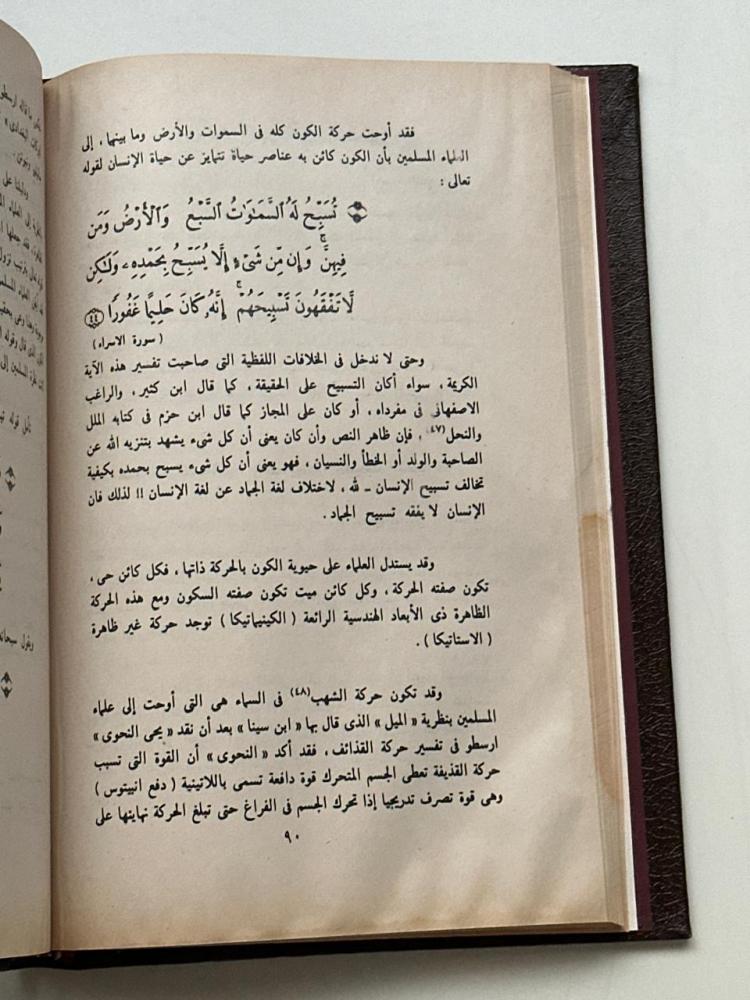 فقد أوحت حركة الكون كله فى السموات والأرض وما بينهما ، إلى
العلماء المسلمين بأن الكون كائن به عناصر حياة تتمايز عن حياة الإنسان لقوله
تعالى :
تُسَبِّحُ لَهُ ٱلسَّمَـٰوَٰتُ ٱلسَّبْعُ وَٱلْأَرْضُ وَمَن
فِيهِنَّ ۚ وَإِن مِّن شَىْءٍ إِلَّا يُسَبِّحُ بِحَمْدِهِۦ وَلَـٰكِن
لَّا تَفْقَهُونَ تَسْبِيحَهُمْ ۗ إِنَّهُۥ كَانَ حَلِيمًا غَفُورًا ﴿٤٤﴾
( سورة الاسراء )
وحتى لا ندخل فى الخلافات اللفظية التى صاحبت تفسير هذه الآية
الكريمة ، سواء أكان التسبيح على الحقيقة ، كما قال ابن كثير ، والراغب
الاصفهانى فى مفرداه ، أو كان على المجاز كما قال ابن حزم فى كتابه الملل
والنحل(٤٧) ، فإن ظاهر النص وأن كان يعنى أن كل شىء يشهد بتنزيه الله عن
الصاحبة والولد أو الخطأ والنسيان ، فهو يعنى أن كل شىء يسبح بحمده بكيفية
تخالف تسبيح الإنسان ــ لله ، لاختلاف لغة الجماد عن لغة الإنسان !! لذلك فان
الإنسان لا يفقه تسبيح الجماد .
وقد يستدل العلماء على حيوية الكون بالحركة ذاتها ، فكل كائن حى ،
تكون صفته الحركة ، وكل كائن ميت تكون صفته السكون ومع هذه الحركة
الظاهرة ذى الأبعاد الهندسية الرائعة ( الكينيماتيكا ) توجد حركة غير ظاهرة
( الاستاتيكا ) .
وقد تكون حركة الشهب(٤٨) فى السماء هى التى أوحت إلى علماء
المسلمين بنظرية « الميل » الذى قال بها « ابن سينا » بعد أن نقد « يحى النحوى »
ارسطو فى تفسير حركة القذائف ، فقد أكد « النحوى » أن القوة التى تسبب
حركة القذيفة تعطى الجسم المتحرك قوة دافعة تسمى باللاتينية ( دفع انبيتوس )
وهى قوة تصرف تدريجيا إذا تحرك الجسم فى الفراغ حتى تبلغ الحركة نهايتها على
٩٠